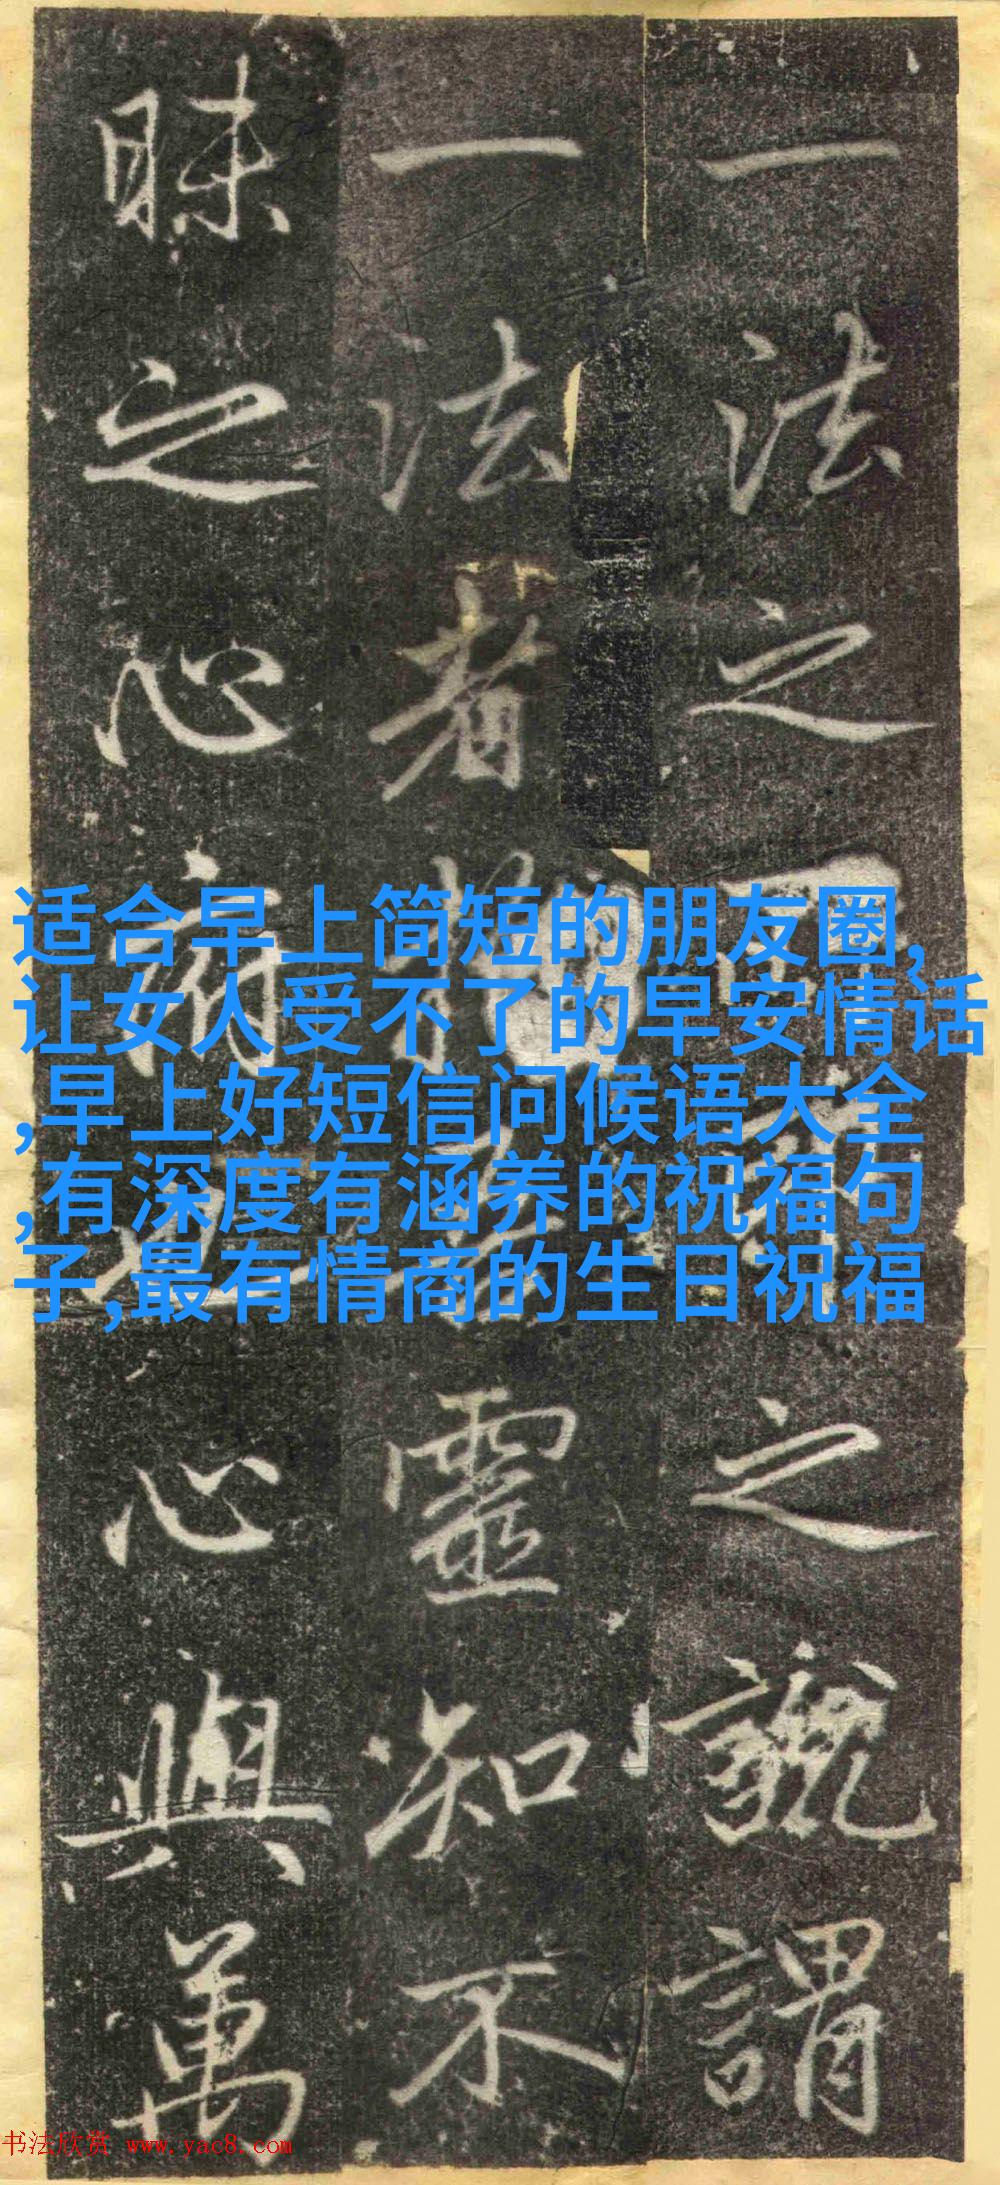 一法之之號謂
一法者靈知不
昧之心心與萬
适合早上简短的朋友圈,
让女人受不了的早安情话
,早上好短信问候语大全
,有深度有涵养的祝福句
子,最有情商的生日祝福
书法欣赏 www.yac8.com